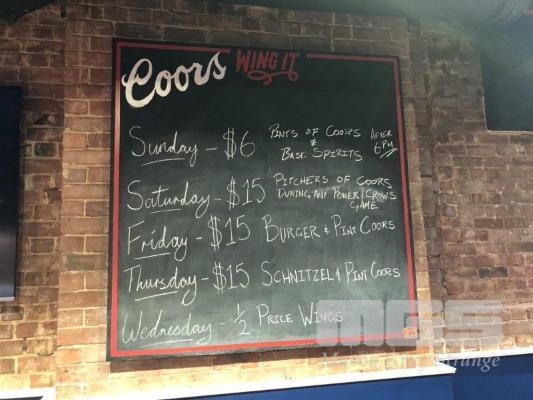 Coors WING IT
Sunday - $6 PINTS OF COORS & BASE SPIRITS AFTER 6PM
Saturday - $15 PITCHERS OF COORS DURING ANY POWER / CROWS GAME
Friday - $15 BURGER & PINT COORS
Thursday - $15 SCHNITZEL & PINT COORS
Wednesday - 1/2 PRICE WINGS
MGS